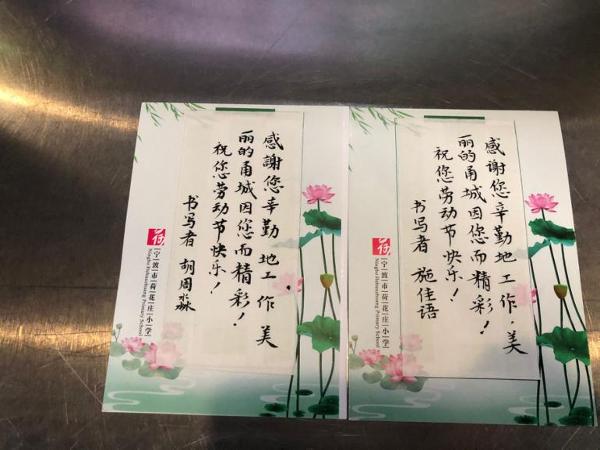 感謝您辛勤地工作，美
丽的甬城因您而精彩！
祝您劳动节快乐！
书写者 胡周淼
宁波市荷花庄小学
Ningbo Hehuazhuang Primary School
感謝您辛勤地工作，美
丽的甬城因您而精彩！
祝您劳动节快乐！
书写者 施佳语
宁波市荷花庄小学
Ningbo Hehuazhuang Primary School